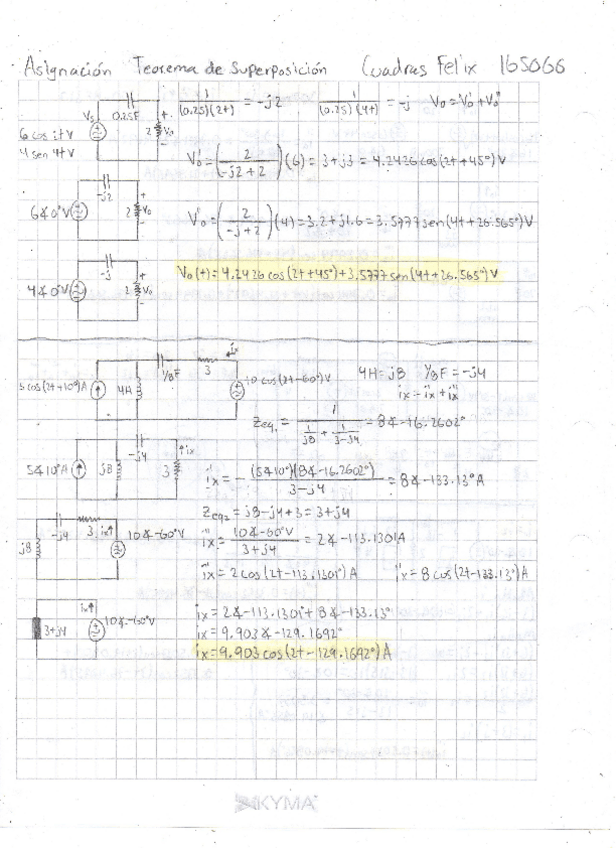 Asignación Teorema de Superposición Cuadras Felix 165066
Vs 0.25F + 2 Vo - 1/(0.25)(2+) = -j2 1/(0.25)(4+) = -j Vo = Vo' + Vo''
6 cos 2t V
4 sen 4t V
Vo' = (2/(-j2+2))(6) = 3+j3 = 4.2426 cos(2t+45°) V
6∡0°V -j2 + 2 Vo -
Vo' = (2/(-j+2))(4) = 3.2+j1.6 = 3.5777 sen(4t+26.565°) V
4∡0°V -j + 2 Vo -
Vo(t) = 4.2426 cos(2t+45°) + 3.5777 sen(4t+26.565°) V
5 cos(2t+10°)A 4H 1/8F 3 ix 10 cos(2t-60°)V
4H = j8 1/8F = -j4
ix = ix' + ix''
Zeq1 = 1/(1/j8 + 1/(3-j4)) = 8∡-16.2602°
5∡10°A j8 -j4 3 ix
ix' = -(5∡10°)(8∡-16.2602°)/(3-j4) = 8∡-133.13° A
Zeq2 = j8-j4+3 = 3+j4
j8 -j4 3 ix 10∡-60°V
ix'' = 10∡-60°V/(3+j4) = 2∡-113.1301 A
ix'' = 2 cos(2t-113.1301°) A ix' = 8 cos(2t-133.13°) A
3+j4 ix 10∡-60°V
ix = 2∡-113.1301° + 8∡-133.13°
ix = 9.903∡-129.1692°
ix = 9.903 cos(2t-129.1692°) A
KYMA